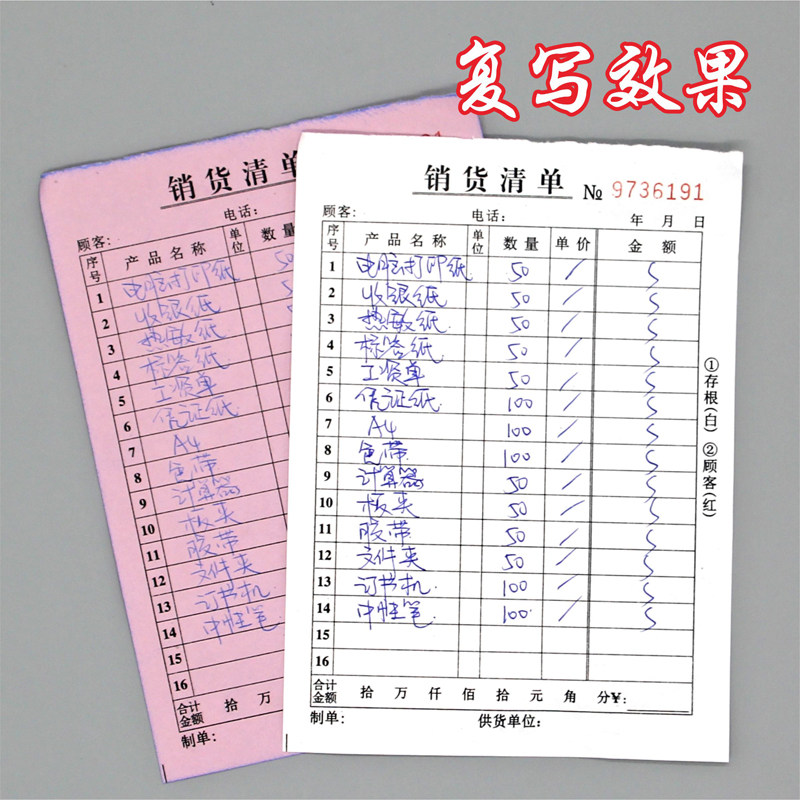 复写效果
销货清单
顾客: 电话:
序号 产品名称 单位 数量
1 电脑打印纸 50
2 收银纸
3 热敏纸
4 标签纸
5 工资单
6 凭证纸
7 A4
8 色带
9 计算器
10 板夹
11 胶带
12 文件夹
13 订书机
14 中性笔
15
16
合计金额 拾 万
制单:
销货清单 № 9736191
顾客: 电话: 年 月 日
序号 产品名称 单位 数量 单价 金额
1 电脑打印纸 50 / 5
2 收银纸 50 / 5
3 热敏纸 50 / 5
4 标签纸 50 / 5
5 工资单 50 / 5
6 凭证纸 100 / 5
7 A4 100 / 5
8 色带 100 / 5
9 计算器 50 / 5
10 板夹 50 / 5
11 胶带 50 / 5
12 文件夹 50 / 5
13 订书机 100 / 5
14 中性笔 100 / 5
15
16
合计金额 拾 万 仟 佰 拾 元 角 分¥:
制单: 供货单位:
①存根(白) ②顾客(红)